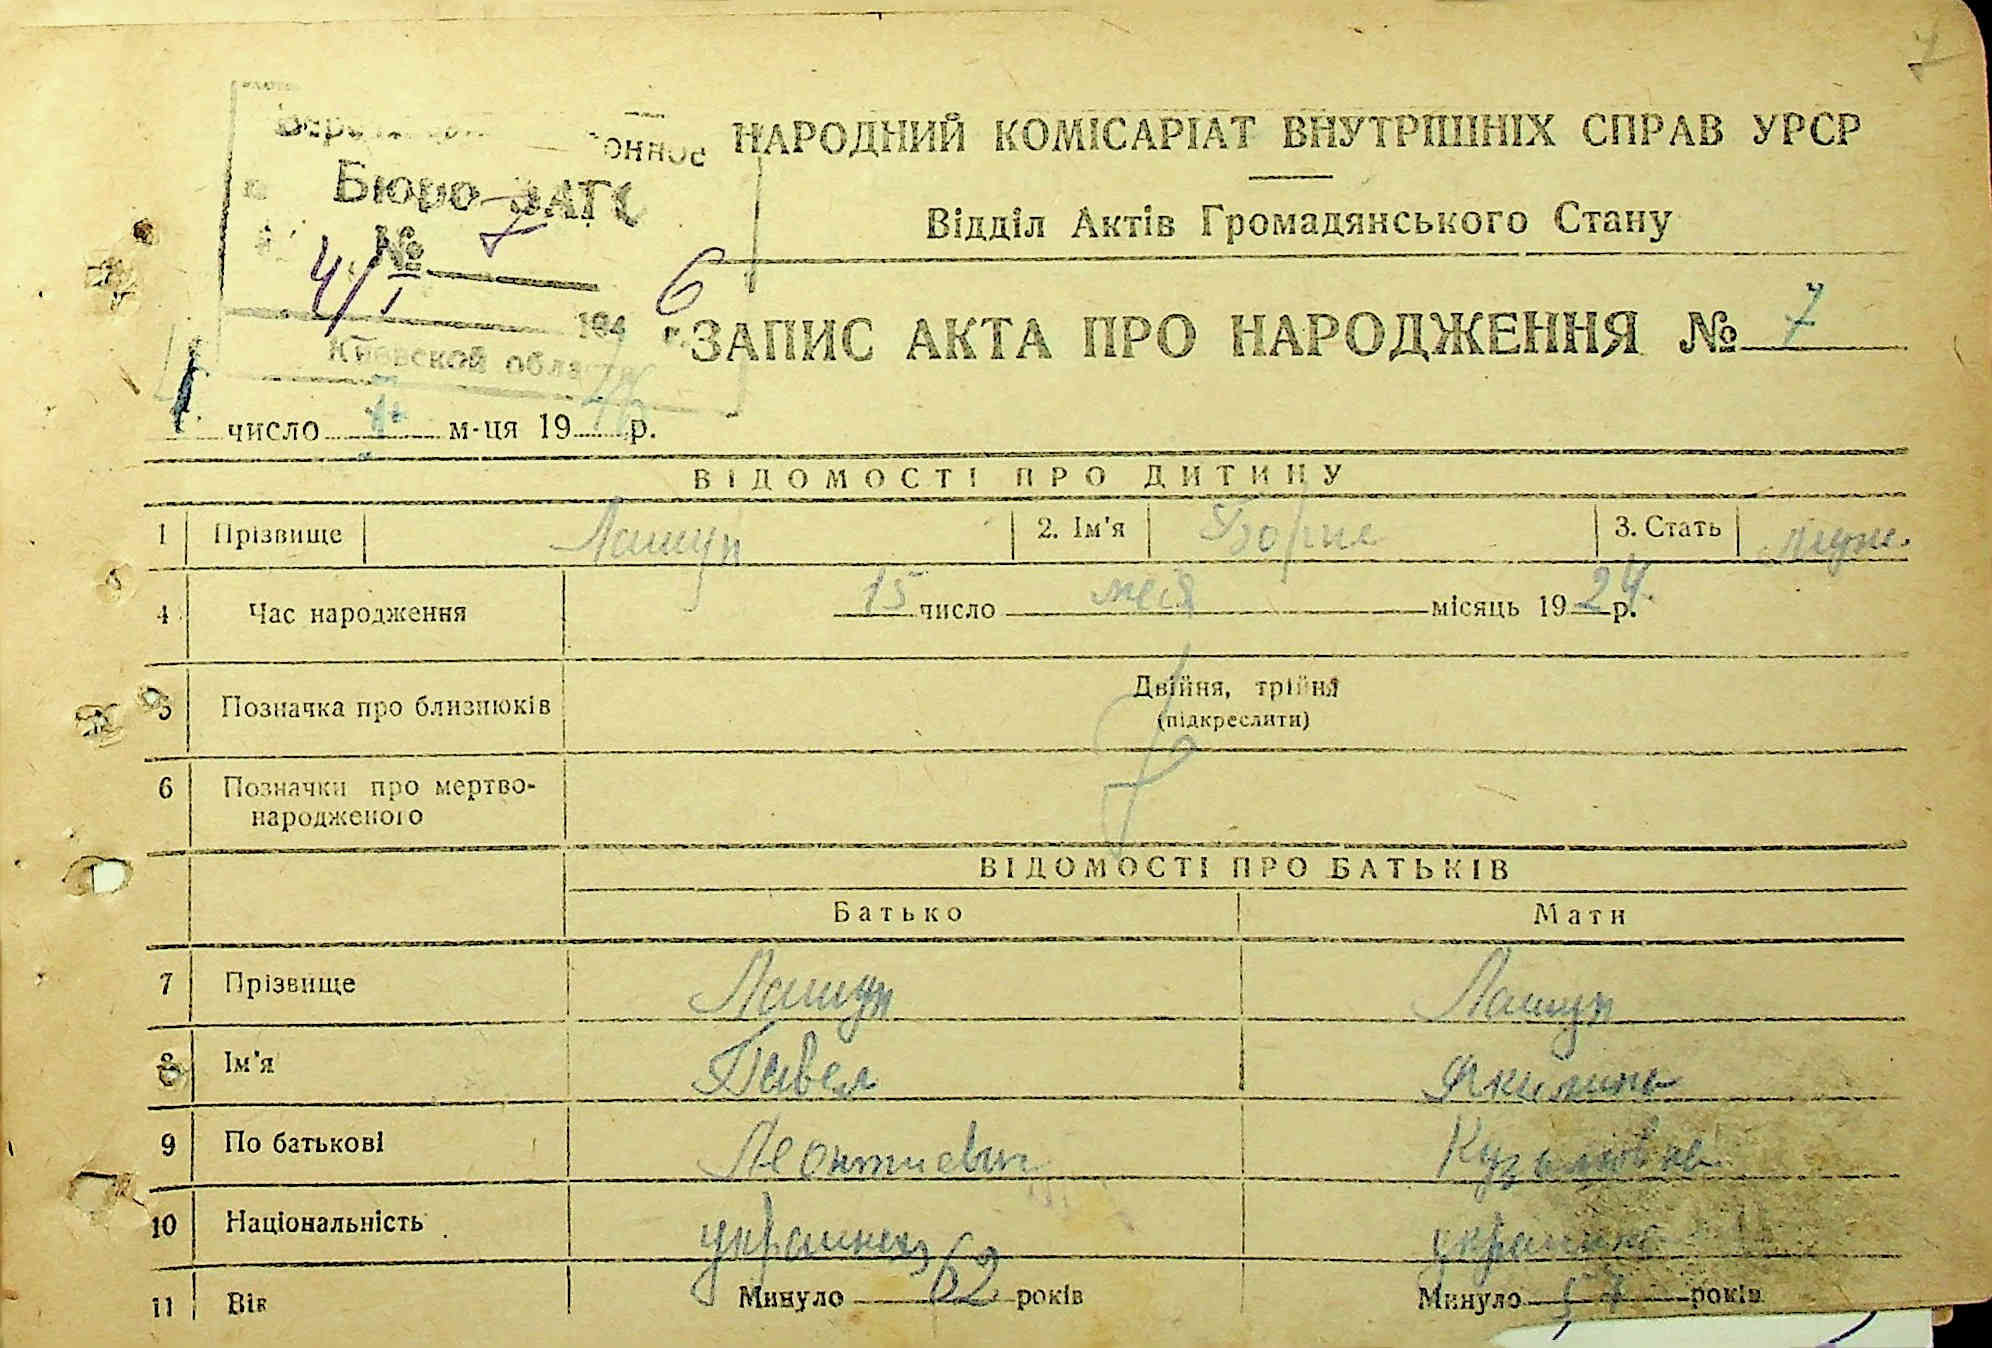 7
НАРОДНИЙ КОМІСАРІАТ ВНУТРІШНІХ СПРАВ УРСР
Бюро ЗАГС
Відділ Актів Громадянського Стану
№ 7
4/I 1946 г.
Киевской области
ЗАПИС АКТА ПРО НАРОДЖЕННЯ № 7
4 число м-ця 1946 р.
ВІДОМОСТІ ПРО ДИТИНУ
1 Прізвище Лашун 2. Ім'я Борис 3. Стать Мужс.
4 Час народження 15 число мая місяць 1924 р.
5 Позначка про близнюків Двійня, трійня
(підкреслити)
6 Позначки про мертво-
народженого
ВІДОМОСТІ ПРО БАТЬКІВ
Батько Мати
7 Прізвище Лашун Лашун
8 Ім'я Павел Акилина
9 По батькові Леонтиевич Кузьмовна
10 Національність украинец украинка
11 Вік Минуло 62 років Минуло 57 років